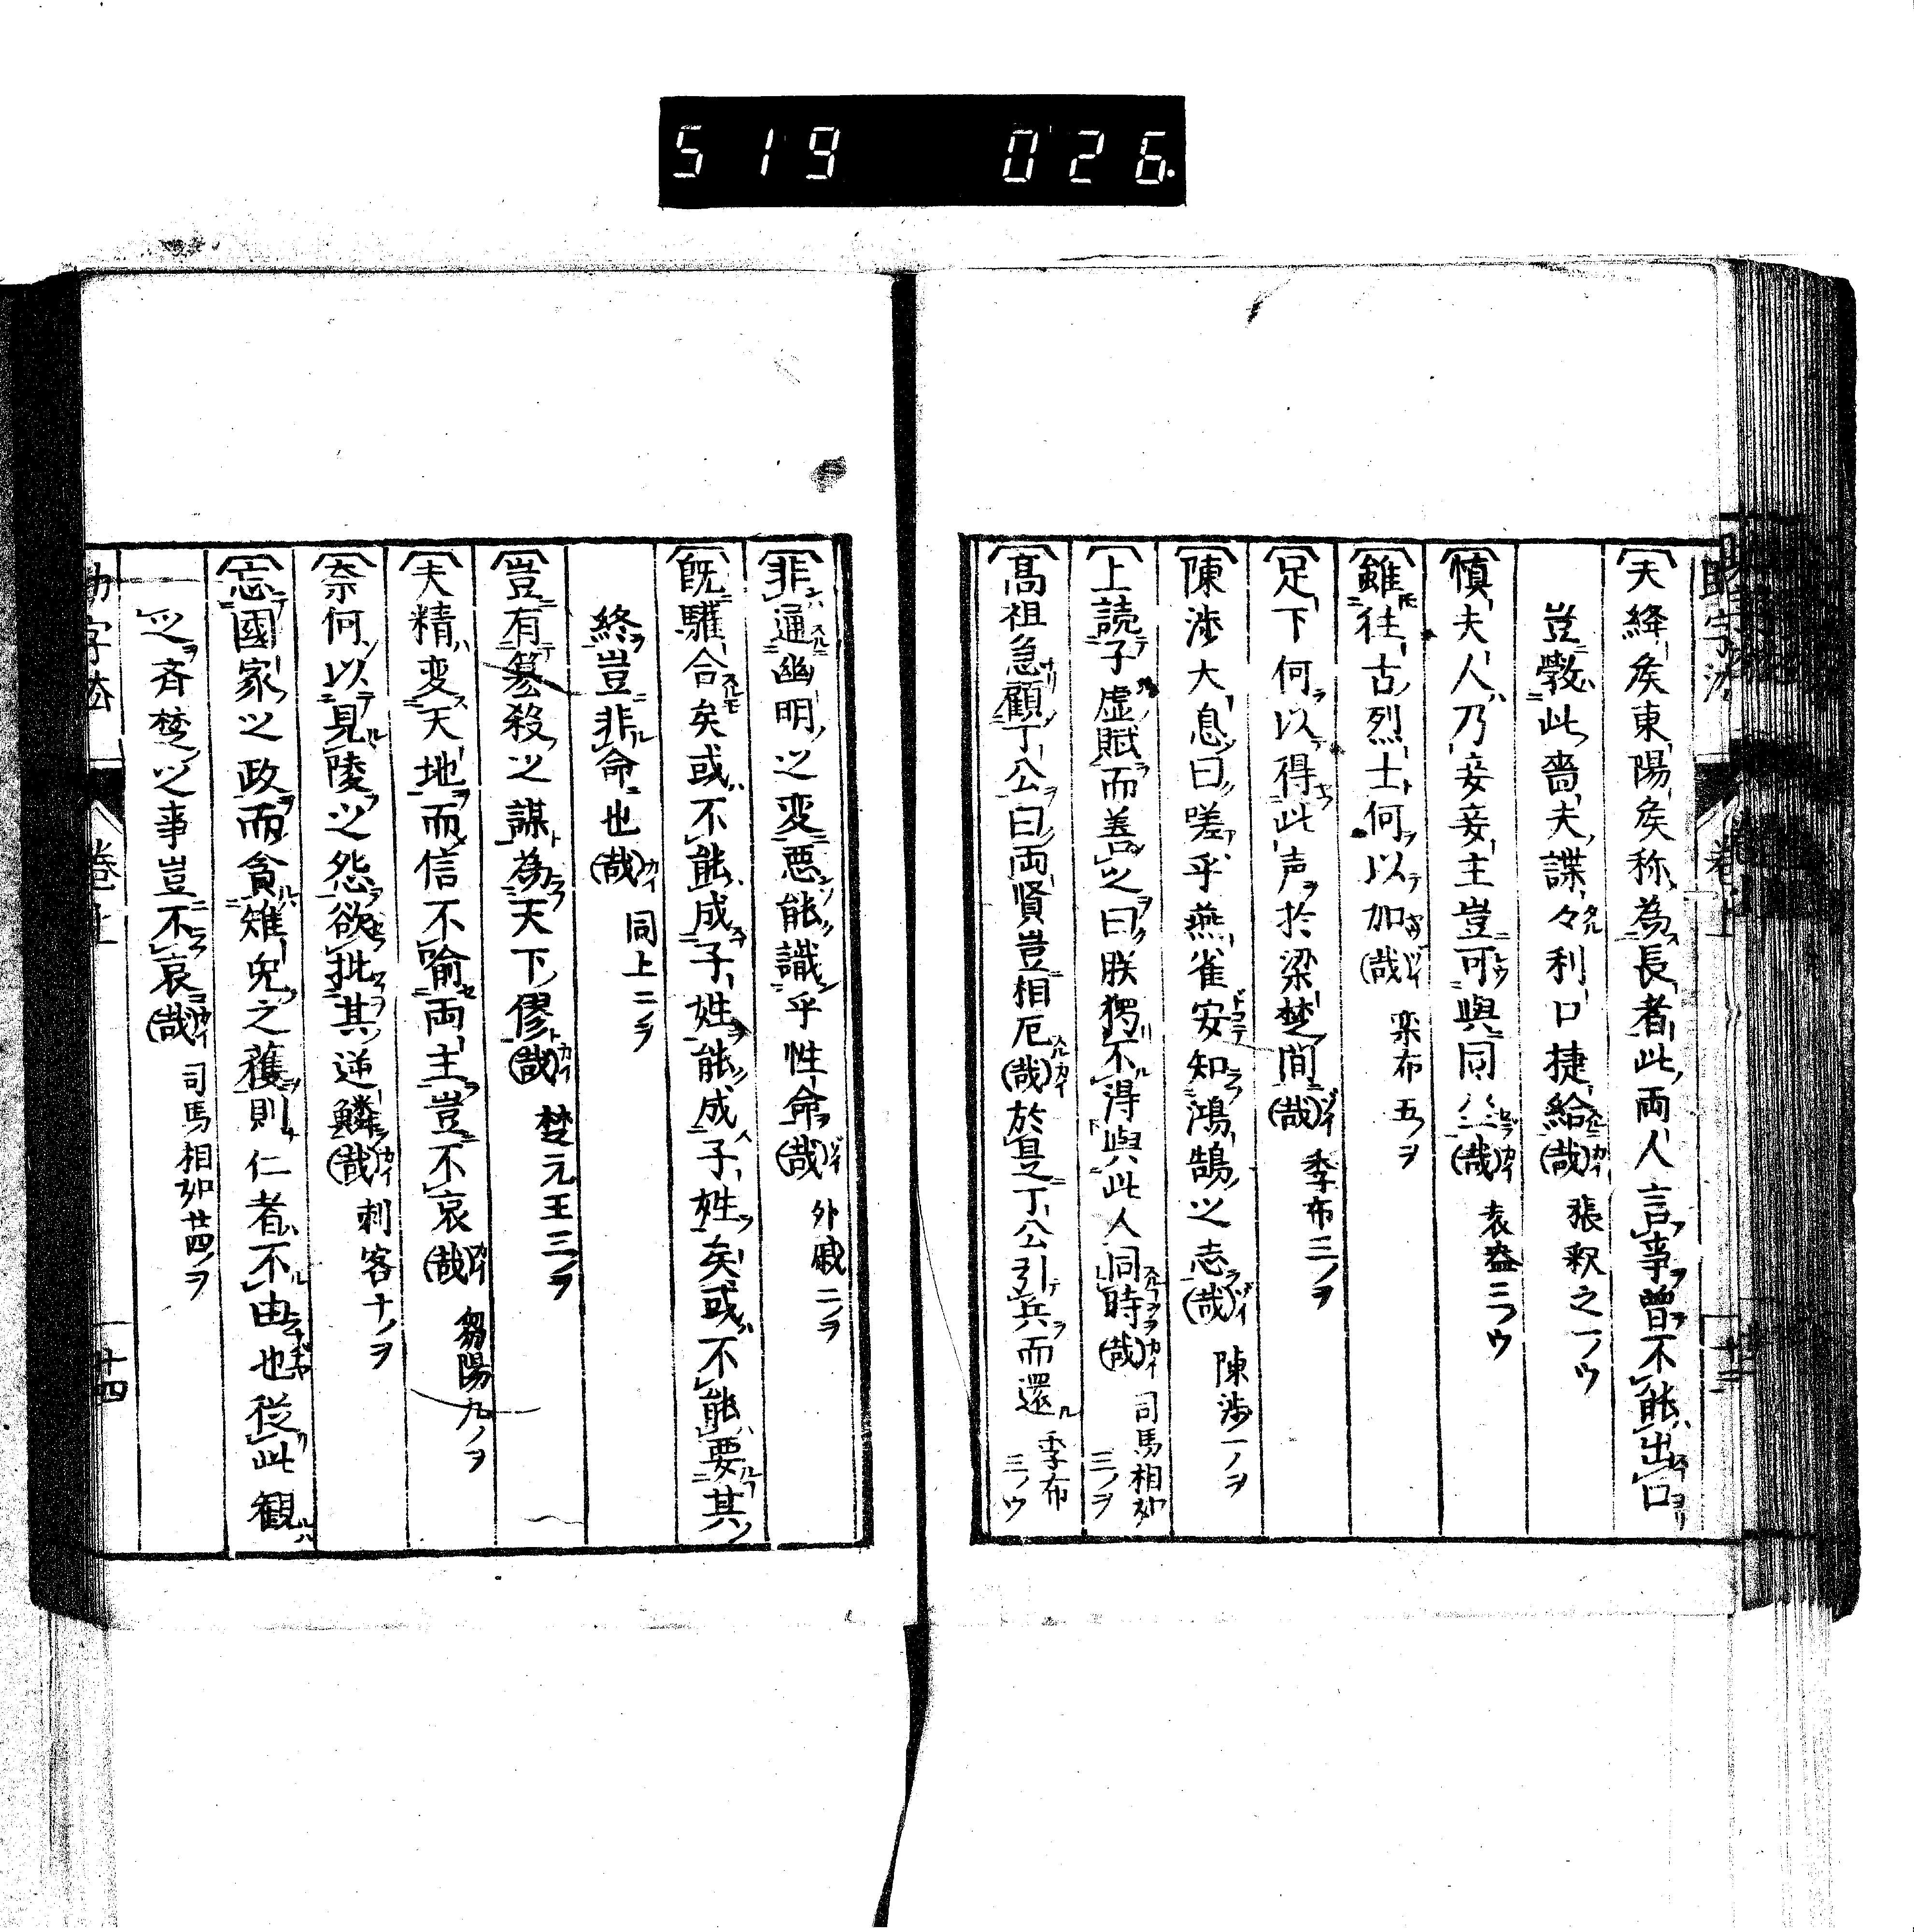 519 026
助字法 卷上
夫絳矦東陽矦称為長者此両人言事曽不能出口
豈斅此嗇夫諜々利口捷給哉 張釈之一ノウ
慎夫人乃妾妾主豈可與同坐哉 袁盎三ノウ
雖徃古烈士何以加哉 栾布五ノヲ
足下何以得此声於梁楚間哉 季布三ノヲ
陳渉大息曰嗟乎燕雀安知鴻鵠之志哉 陳渉一ノヲ
上読子虚賦而善之曰朕獨不得與此人同時哉 司馬相如三ノヲ
髙祖急顧丁公曰両賢豈相厄哉於是丁公引兵而還 季布三ノウ
非通幽明之変悪能識乎性命哉 外戚二ノヲ
既驩合矣或不能成子姓能成子姓矣或不能要其
終豈非命也哉 同上二ノヲ
豈有簒殺之謀為天下僇哉 楚元王三ノヲ
夫精変天地而信不喻両主豈不哀哉 芻陽九ノヲ
奈何以見陵之怨欲批其逆鱗哉 刺客十ノヲ
忘國家之政而貪雉兎之獲則仁者不由也従此觀
之斉楚之事豈不哀哉 司馬相如廿四ノヲ
助字法 卷上 十四